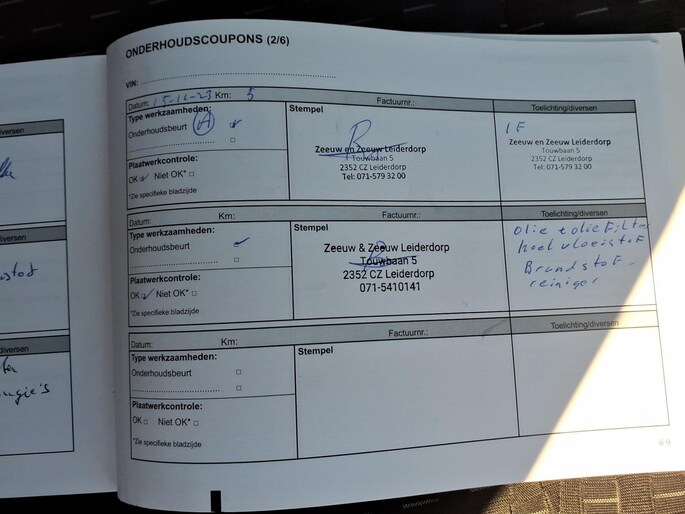 ONDERHOUDSCOUPONS (2/6)
VIN:
Datum: 15-11-23 Km: 5
Factuurnr.:
Toelichting/diversen
Type werkzaamheden:
Onderhoudsbeurt A
Plaatwerkcontrole:
OK Niet OK*
*Zie specifieke bladzijde
Stempel
Zeeuw en Zeeuw Leiderdorp
Touwbaan 5
2352 CZ Leiderdorp
Tel: 071-579 32 00
Zeeuw en Zeeuw Leiderdorp
Touwbaan 5
2352 CZ Leiderdorp
Tel: 071-579 32 00
Datum: Km:
Factuurnr.:
Toelichting/diversen
Type werkzaamheden:
Onderhoudsbeurt
Plaatwerkcontrole:
OK Niet OK*
*Zie specifieke bladzijde
Stempel
Zeeuw & Zeeuw Leiderdorp
Touwbaan 5
2352 CZ Leiderdorp
071-5410141
olie + oliefilter
koelvloeistof
Brandstof-
reiniger
Datum: Km:
Factuurnr.:
Toelichting/diversen
Type werkzaamheden:
Onderhoudsbeurt
Plaatwerkcontrole:
OK Niet OK*
*Zie specifieke bladzijde
Stempel
6.9
diversen
diversen
diversen